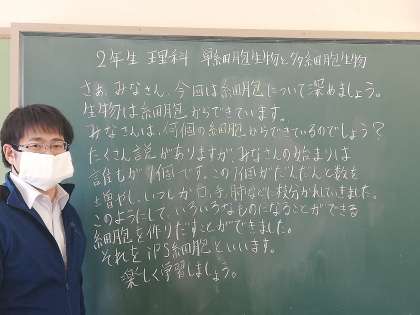 2年生 理科 単細胞生物と多細胞生物
さぁ、みなさん、今回は細胞について深めましょう。
生物は細胞からできています。
みなさんは、何個の細胞からできているのでしょう？
たくさん説がありますが、みなさんの始まりは
誰もが1個です。この1個がだんだんと数を
増やし、いつしか口、手、肺などに枝分かれしていきました。
このようにして、いろいろなものになることができる
細胞を作りだすことができました。
それをiPS細胞といいます。
楽しく学習しましょう。